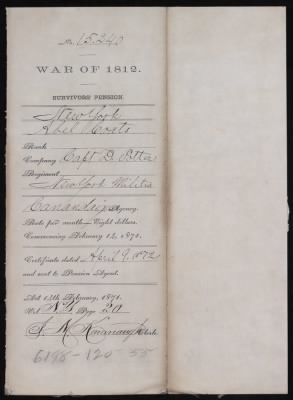 No. 15.240
WAR OF 1812.
SURVIVORS' PENSION
New York
Abel Coats
Rank
Company Capt D. Potter
Regiment
New York Militia
Canandaigua Agency.
Rate per month—Eight dollars.
Commencing February 14, 1871.
Certificate dated April 9, 1872
and sent to Pension Agent.
Act 14th February, 1871.
Vol. N.Y. Page 20
Clerk.
6198-120 55